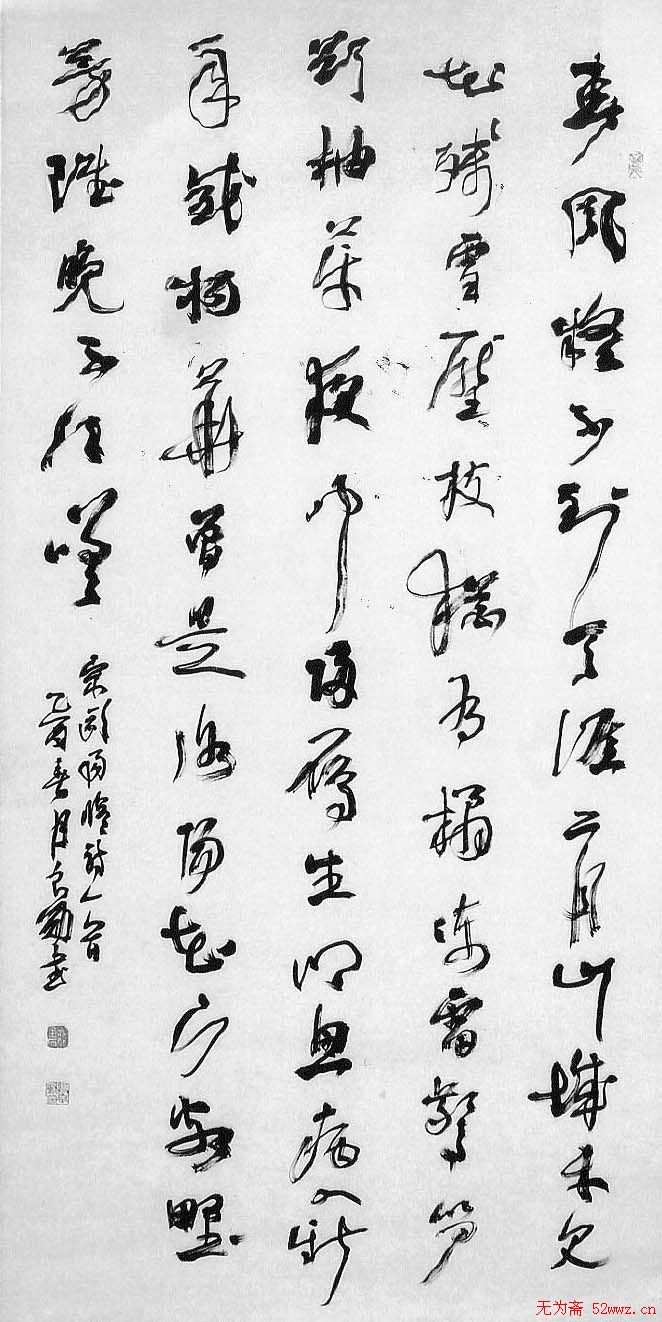 春風疑不到天涯二月山城未見
花殘雪壓枝猶有橘凍雷驚筍
欲抽芽夜聞歸雁生鄉思病入新
年感物華曾是洛陽花下客野
芳雖晚不須嗟
宋歐陽修詩一首
乙酉春月書
无为斋 52wwz.cn